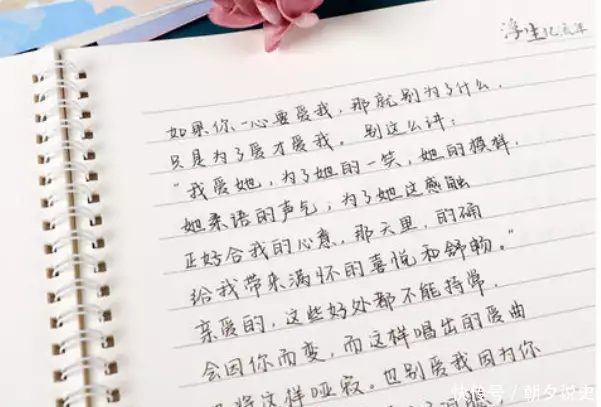 浮生记流年
如果你一心要爱我，那就别为了什么，
只是为了爱才爱我。别这么讲：
“我爱她，为了她的一笑，她的模样，
她柔语的声气；为了她这感触
正好合我的心意，那天里，的确
给我带来满怀的喜悦和舒畅。”
亲爱的，这些好外都不能持常，
会因你而变，而这样唱出的爱曲
将这样哑寂。也别爱我因为你
快传号/朝夕说史